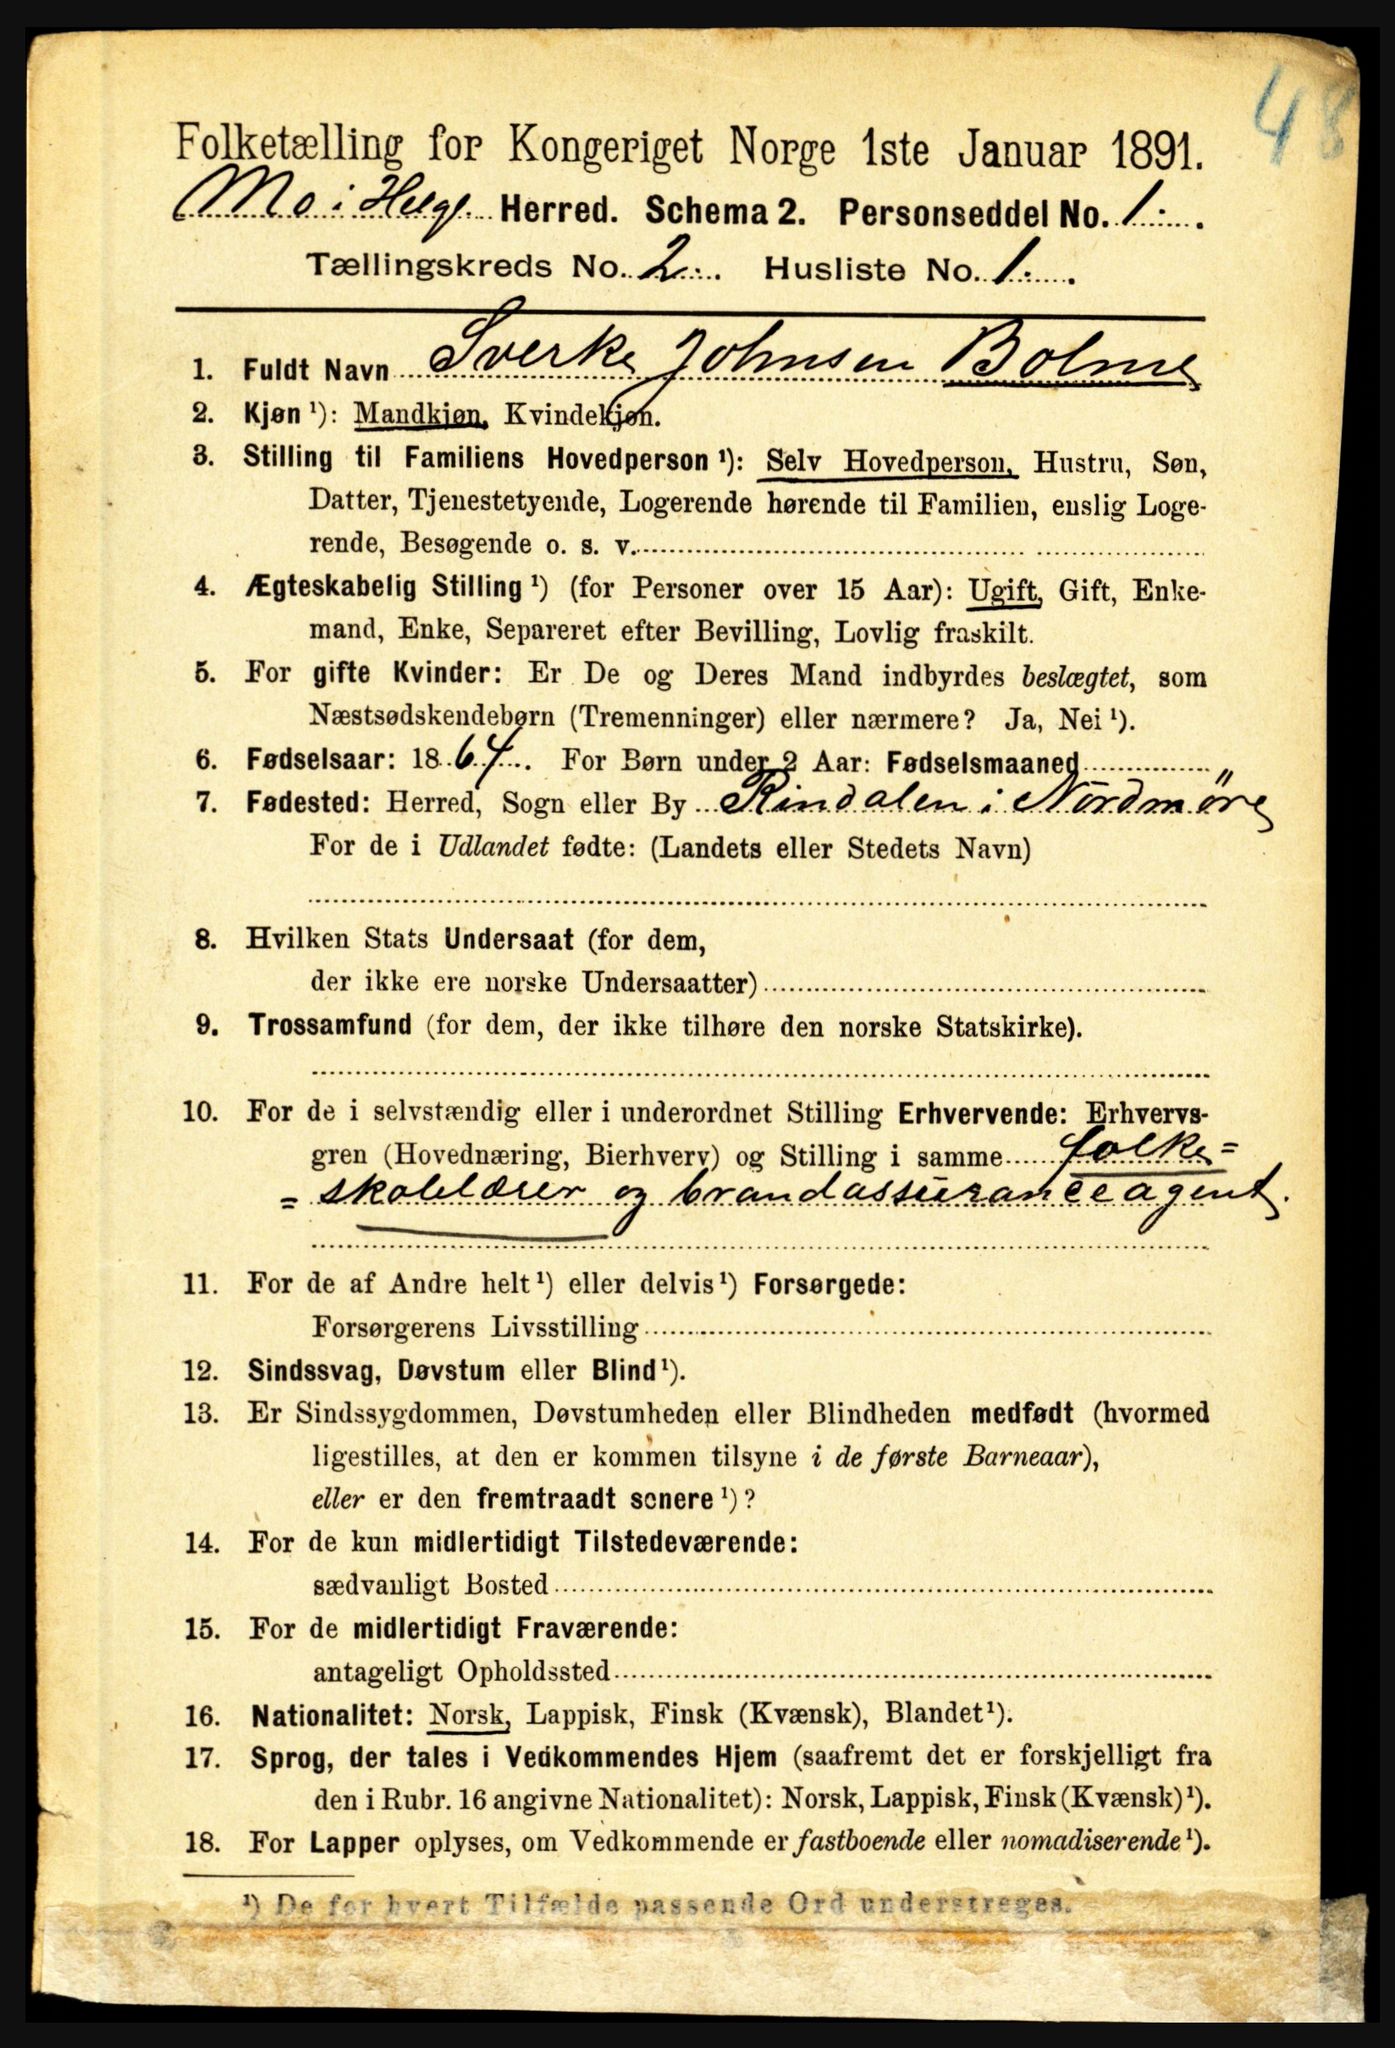 48
Folketælling for Kongeriget Norge 1ste Januar 1891.
Mo i Helgl. Herred. Schema 2. Personseddel No. 1.
Tællingskreds No. 2. Husliste No. 1.
1. Fuldt Navn Sverke Johnsen Bolme
2. Kjøn¹): Mandkjøn, Kvindekjøn.
3. Stilling til Familiens Hovedperson¹): Selv Hovedperson, Hustru, Søn,
Datter, Tjenestetyende, Logerende hørende til Familien, enslig Loge-
rende, Besøgende o. s. v.
4. Ægteskabelig Stilling¹) (for Personer over 15 Aar): Ugift, Gift, Enke-
mand, Enke, Separeret efter Bevilling, Lovlig fraskilt.
5. For gifte Kvinder: Er De og Deres Mand indbyrdes beslægtet, som
Næstsødskendebørn (Tremenninger) eller nærmere? Ja, Nei¹).
6. Fødselsaar: 1864. For Børn under 2 Aar: Fødselsmaaned
7. Fødested: Herred, Sogn eller By Rindalen i Nordmøre
For de i Udlandet fødte: (Landets eller Stedets Navn)
8. Hvilken Stats Undersaat (for dem,
der ikke ere norske Undersaatter)
9. Trossamfund (for dem, der ikke tilhøre den norske Statskirke).
10. For de i selvstændig eller i underordnet Stilling Erhvervende: Erhvervs-
gren (Hovednæring, Bierhverv) og Stilling i samme folke=
=skolelærer og brandassuranceagent.
11. For de af Andre helt¹) eller delvis¹) Forsørgede:
Forsørgerens Livsstilling
12. Sindssvag, Døvstum eller Blind¹).
13. Er Sindssygdommen, Døvstumheden eller Blindheden medfødt (hvormed
ligestilles, at den er kommen tilsyne i de første Barneaar),
eller er den fremtraadt senere¹)?
14. For de kun midlertidigt Tilstedeværende:
sædvanligt Bosted
15. For de midlertidigt Fraværende:
antageligt Opholdssted
16. Nationalitet: Norsk, Lappisk, Finsk (Kvænsk), Blandet¹).
17. Sprog, der tales i Vedkommendes Hjem (saafremt det er forskjelligt fra
den i Rubr. 16 angivne Nationalitet): Norsk, Lappisk, Finsk (Kvænsk)¹).
18. For Lapper oplyses, om Vedkommende er fastboende eller nomadiserende¹).
¹) De for hvert Tilfælde passende Ord understreges.